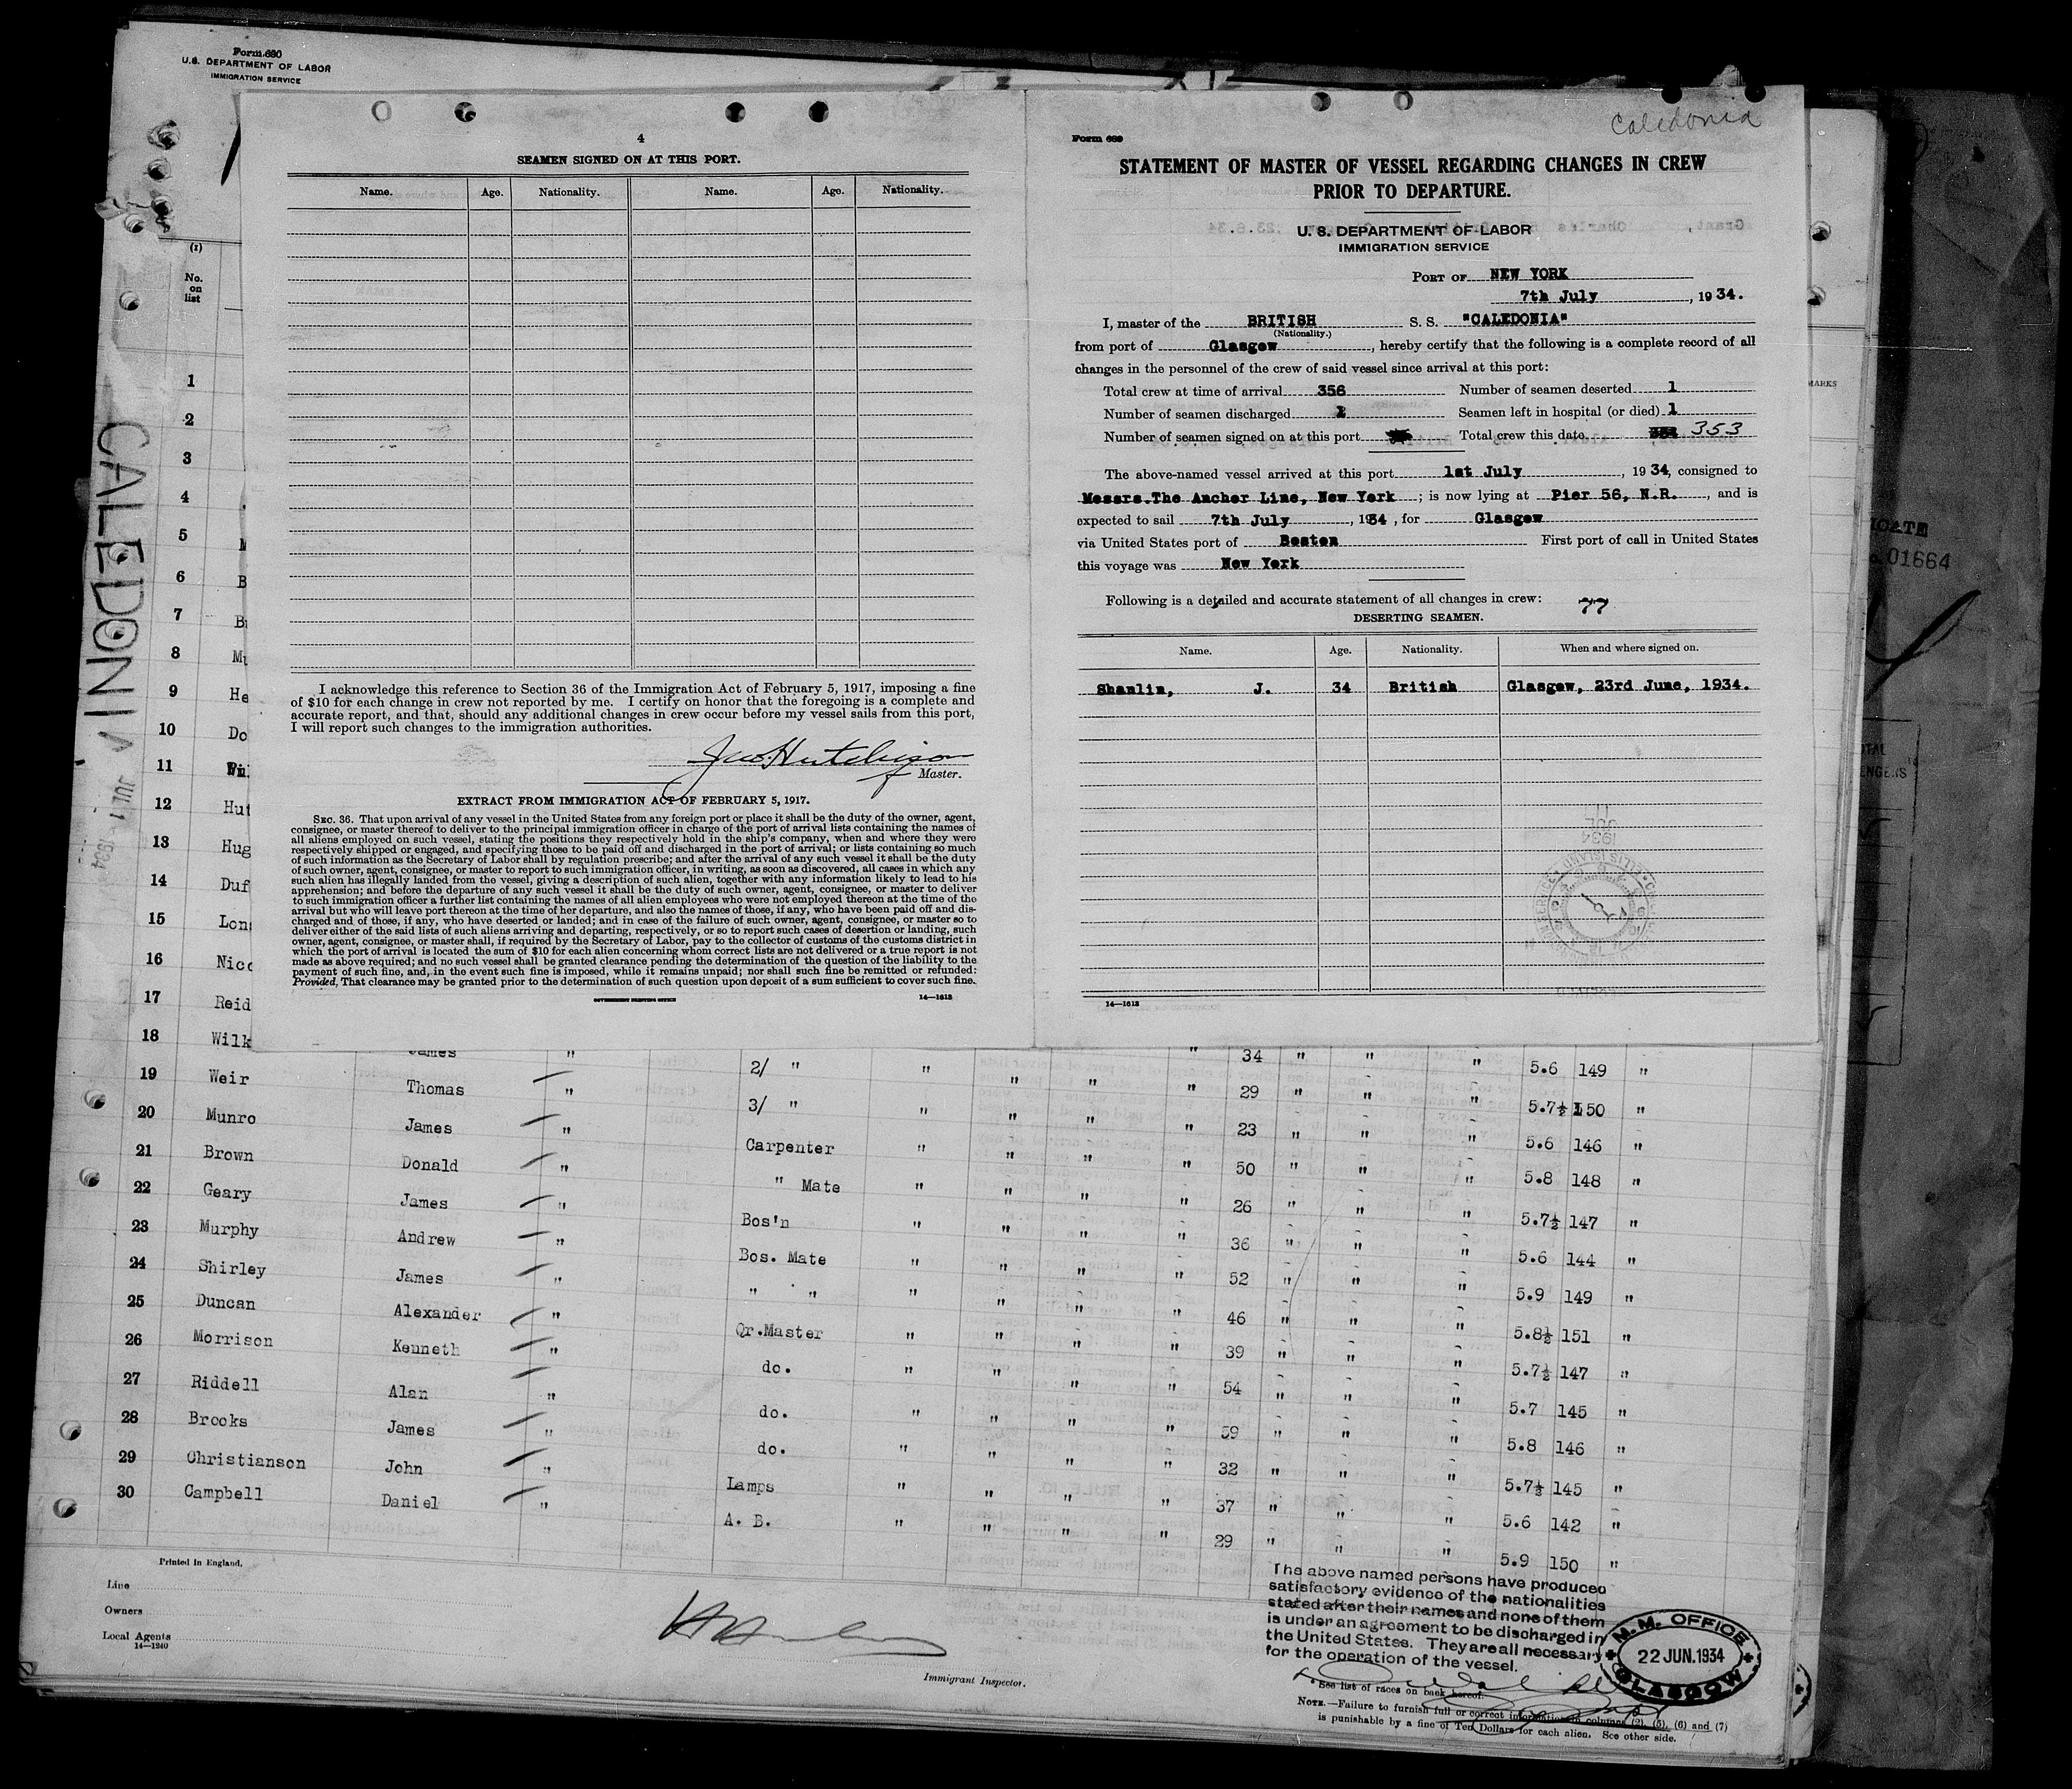 Form 680
U.S. DEPARTMENT OF LABOR
IMMIGRATION SERVICE
(1)
No.
on
list
CALEDONIA
JUL 1 1934
4
SEAMEN SIGNED ON AT THIS PORT.
Name. Age. Nationality. Name. Age. Nationality.
I acknowledge this reference to Section 36 of the Immigration Act of February 5, 1917, imposing a fine
of $10 for each change in crew not reported by me. I certify on honor that the foregoing is a complete and
accurate report, and that, should any additional changes in crew occur before my vessel sails from this port,
I will report such changes to the immigration authorities.
Jno. Hutchison
Master.
EXTRACT FROM IMMIGRATION ACT OF FEBRUARY 5, 1917.
SEC. 36. That upon arrival of any vessel in the United States from any foreign port or place it shall be the duty of the owner, agent,
consignee, or master thereof to deliver to the principal immigration officer in charge of the port of arrival lists containing the names of
all aliens employed on such vessel, stating the positions they respectively hold in the ship's company, when and where they were
respectively shipped or engaged, and specifying those to be paid off and discharged in the port of arrival; or lists containing so much
of such information as the Secretary of Labor shall by regulation prescribe; and after the arrival of any such vessel it shall be the duty
of such owner, agent, consignee, or master to report to such immigration officer, in writing, as soon as discovered, all cases in which any
such alien has illegally landed from the vessel, giving a description of such alien, together with any information likely to lead to his
apprehension; and before the departure of any such vessel it shall be the duty of such owner, agent, consignee, or master to deliver
to such immigration officer a further list containing the names of all alien employees who were not employed thereon at the time of the
arrival but who will leave port thereon at the time of her departure, and also the names of those, if any, who have been paid off and dis-
charged and of those, if any, who have deserted or landed; and in case of the failure of such owner, agent, consignee, or master so to
deliver either of the said lists of such aliens arriving and departing, respectively, or so to report such cases of desertion or landing, such
owner, agent, consignee, or master shall, if required by the Secretary of Labor, pay to the collector of customs of the customs district in
which the port of arrival is located the sum of $10 for each alien concerning whom correct lists are not delivered or a true report is not
made as above required; and no such vessel shall be granted clearance pending the determination of the question of the liability to the
payment of such fine, and, in the event such fine is imposed, while it remains unpaid; nor shall such fine be remitted or refunded:
Provided, That clearance may be granted prior to the determination of such question upon deposit of a sum sufficient to cover such fine.
GOVERNMENT PRINTING OFFICE 14—1613
Caledonia
Form 689
STATEMENT OF MASTER OF VESSEL REGARDING CHANGES IN CREW
PRIOR TO DEPARTURE.
U. S. DEPARTMENT OF LABOR
IMMIGRATION SERVICE
PORT OF NEW YORK
7th July, 1934.
I, master of the BRITISH S. S. "CALEDONIA"
(Nationality.)
from port of Glasgow, hereby certify that the following is a complete record of all
changes in the personnel of the crew of said vessel since arrival at this port:
Total crew at time of arrival 356 Number of seamen deserted 1
Number of seamen discharged 1 Seamen left in hospital (or died) 1
Number of seamen signed on at this port Total crew this date 353
The above-named vessel arrived at this port 1st July, 1934, consigned to
Messrs.The Anchor Line, New York; is now lying at Pier 56, N.R., and is
expected to sail 7th July, 1934, for Glasgow
via United States port of Boston First port of call in United States
this voyage was New York
Following is a detailed and accurate statement of all changes in crew: 77
DESERTING SEAMEN.
Name. Age. Nationality. When and where signed on.
Shanlin, J. 34 British Glasgow, 23rd June, 1934.
14—1613
MARKS
01664
1
2
3
4
5
6 B
7
8 Mu
9 He
10 Do
11
12 Hut
13 Hug
14 Duf
15 Lon
16 Nicc
17 Reid
18 Wilk James " 2/ " " " 34 " " " 5.6 149 "
19 Weir Thomas " 3/ " " " " " 29 " " " 5.7½ 150 "
20 Munro James " Carpenter " " " " 23 " " " 5.6 146 "
21 Brown Donald " " Mate " " " " 50 " " " 5.8 148 "
22 Geary James " Bos'n " " " " 26 " " " 5.7½ 147 "
23 Murphy Andrew " Bos. Mate " " " " 36 " " " 5.6 144 "
24 Shirley James " " " " " " " 52 " " " 5.9 149 "
25 Duncan Alexander " Qr.Master " " " " 46 " " " 5.8½ 151 "
26 Morrison Kenneth " do. " " " " 39 " " " 5.7½ 147 "
27 Riddell Alan " do. " " " 54 " " " 5.7 145 "
28 Brooks James " do. " " " " 59 " " " 5.8 146 "
29 Christianson John " Lamps " " " " 32 " " " 5.7½ 145 "
30 Campbell Daniel " A. B. " " " " 37 " " " 5.6 142 "
" " " " 29 " " " 5.9 150 "
Printed in England.
Line
Owners
Local Agents
14—1240
Immigrant Inspector.
The above named persons have produced
satisfactory evidence of the nationalities
stated after their names and none of them
is under an agreement to be discharged in
the United States. They are all necessary
for the operation of the vessel.
M.M. OFFICE
22 JUN.1934
GLASGOW
* See list of races on back hereof.
NOTE.—Failure to furnish full or correct information in columns (2), (5), (6) and (7)
is punishable by a fine of Ten Dollars for each alien. See other side.